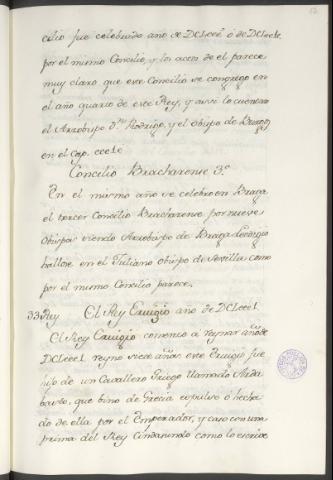 cilio fue celebrado año de DClxxii ó de DClxxiii
por el mismo Concilio, y los actos de el parece
muy claro que este Concilio se congrego en
el año quarto de este Rey, y ansi lo cuentan
el Arzobispo D.ⁿ Rodrigo, y el obispo de Burgos
en el Cap.
Concilio Bracharense 3.º
En el mismo año se celebro en Braga
el tercer Concilio Bracharense por nueve
obispos siendo Arzobispo de Braga Leodigio
hallose en el Juliano obispo de Sevilla como
por el mismo Concilio parece.
33 Rey El Rey Eruigio año de DClxxxI
El Rey Eruigio comenzo a reynar año de
DClxxxI reyno siete años este Eruigio fue
hijo de un Cavallero Griego llamado Arda
basto, que bino de Grecia expulso ó hecha
do de ella por el Emperador, y caso con una
prima del Rey Cindasundo como lo escrive